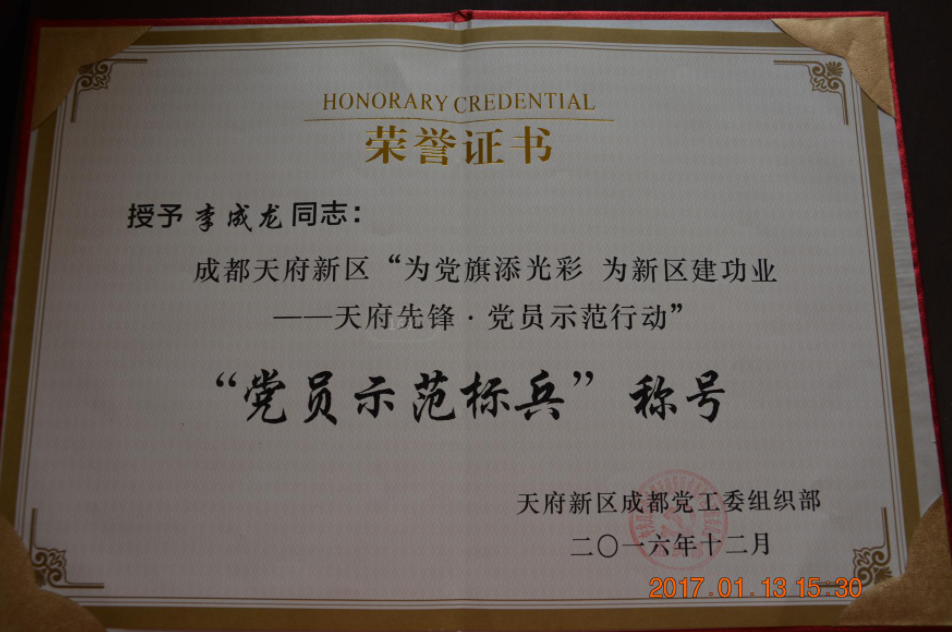 HONORARY CREDENTIAL
荣誉证书
授予 李成龙 同志：
成都天府新区“为党旗添光彩 为新区建功业
——天府先锋·党员示范行动”
“党员示范标兵”称号
天府新区成都党工委组织部
二〇一六年十二月
2017.01.13 15:30